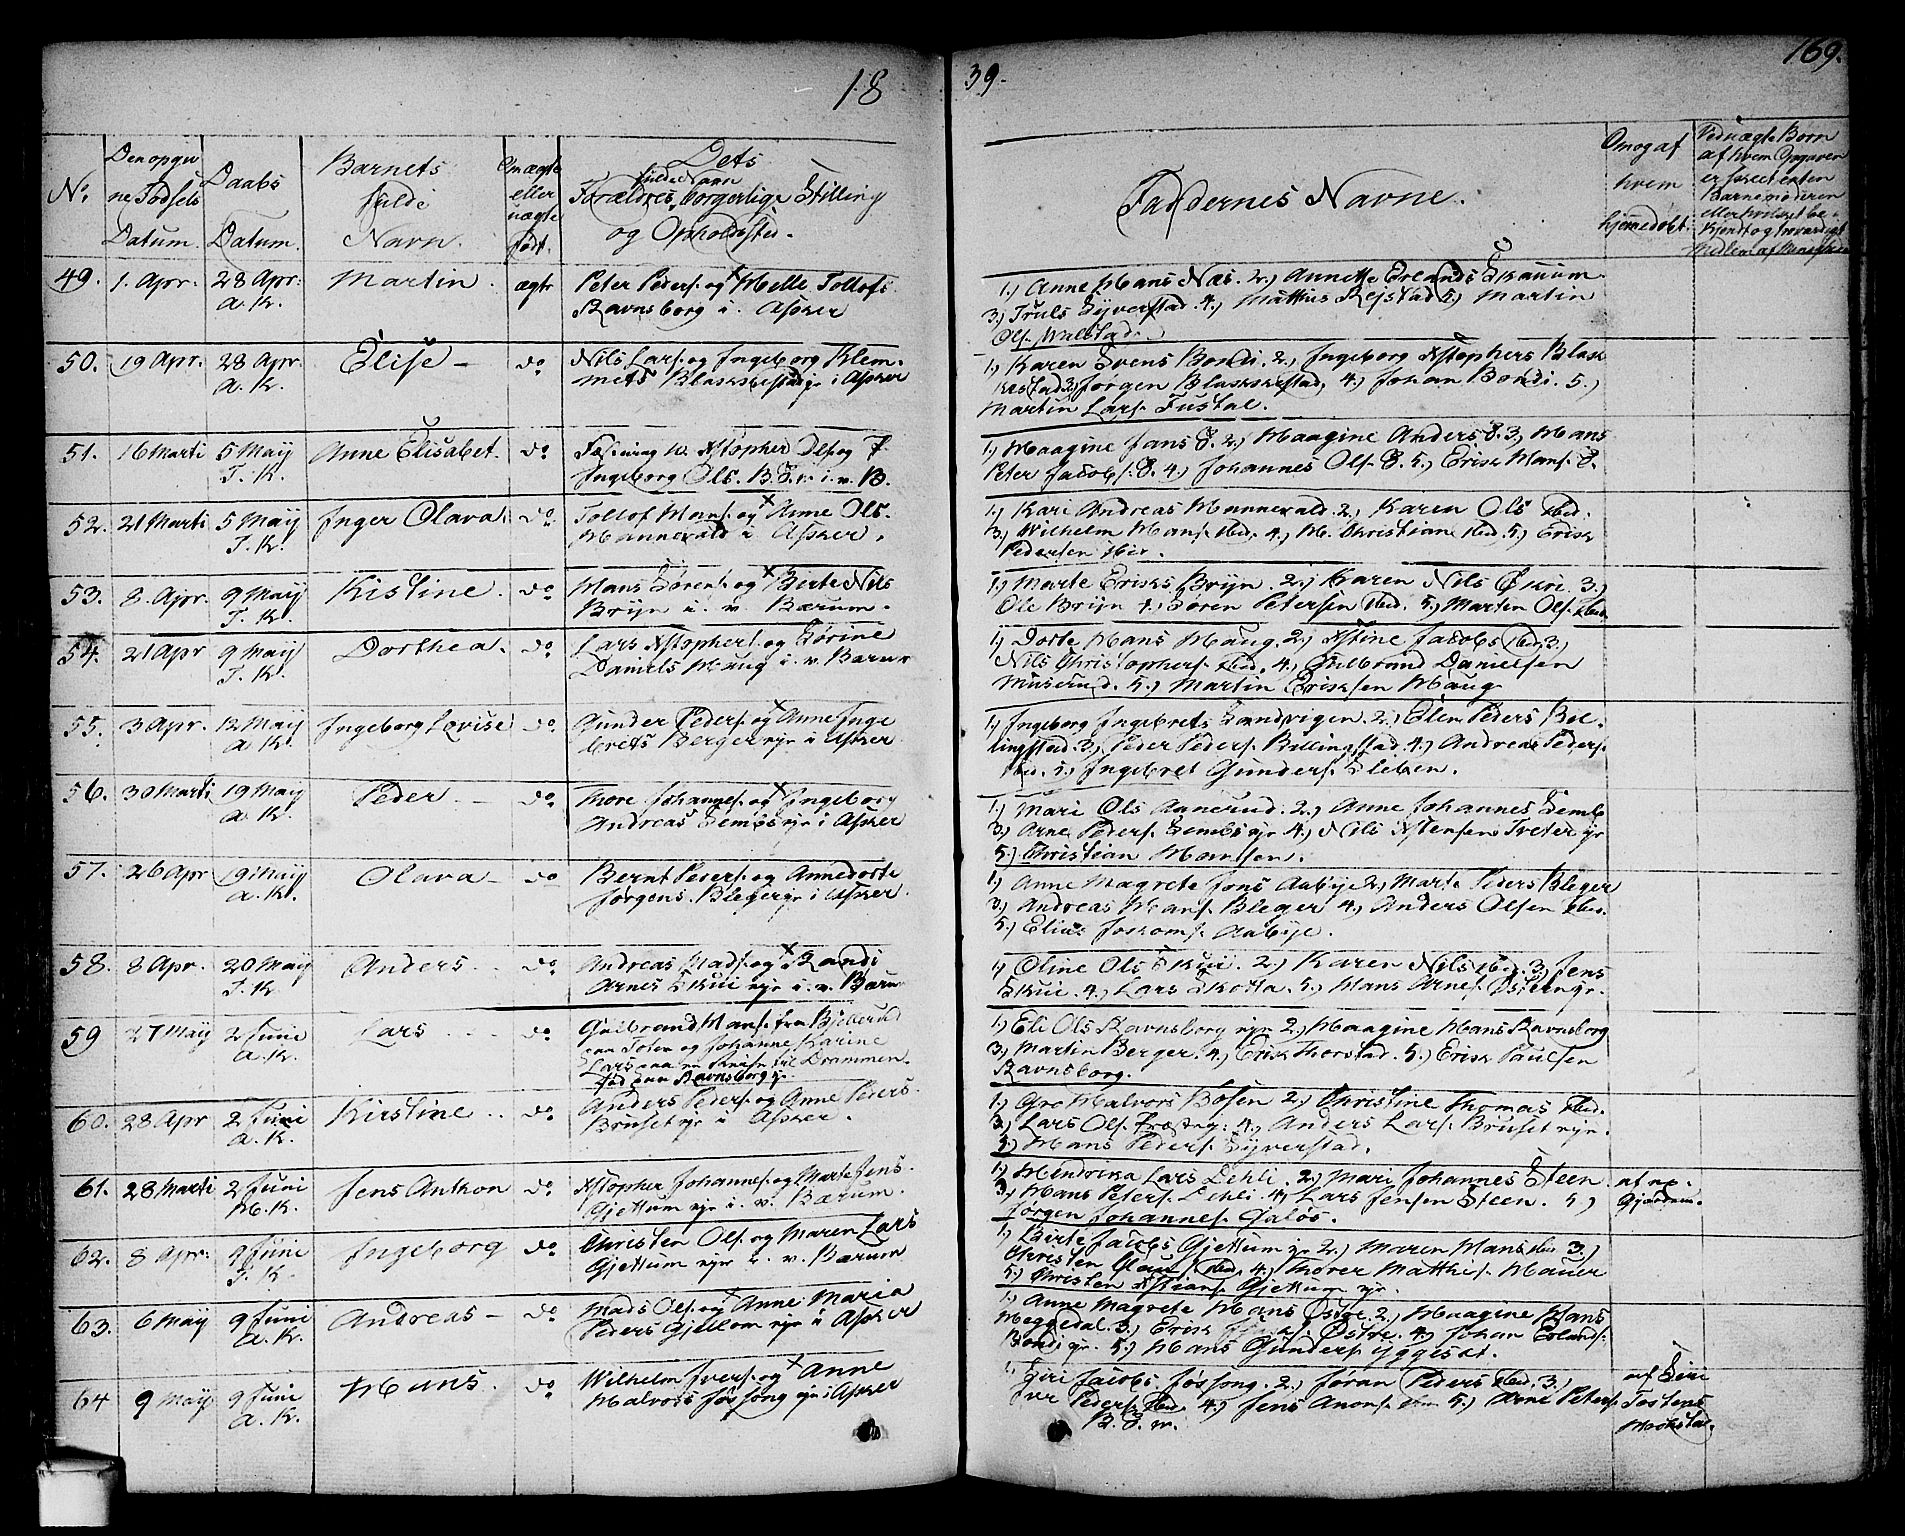 18
39.
169.
No.
Den opgivne Fødsels Datum.
Daabs Datum.
Barnets fulde Navn.
Om ægte eller uægte født.
Dets Forældres fulde Navn, borgerlige Stilling og Opholdssted.
Faddernes Navne.
Om og af hvem hjemmedøbt.
49. 1. Apr. 28 Apr. A. K. Martin. ægte
Peter Peders. og Helle Tollofs
Ravnsborg i Asker
1.) Anne Hans Næs. 2.) Annette Erlands Skauum.
3.) Truls Syverstad. 4.) Matthis Rejstad 5.) Martin
Ols. Walstad.
50. 19 Apr. 28 Apr. A. K. Elise – do
Nils Lars. og Ingeborg Klem-
mets Blakkestad gr i Asker
1.) Karen Svens Bondi. 2.) Ingeborg Xstophers Blak
kestad 3.) Jørgen Blakkestad, 4.) Johan Bondi. 5.)
Martin Lars. Fustal.
51. 16 Marti 5 Maij T. K. Anne Elisabet. do
Xstopher Ols. og
Ingeborg Ols. B. S. v. i. v. B.
1.) Maagine Jans S. 2.) Maagine Anders S. 3.) Hans
Peter Jacobs. S. 4.) Johannes Ols. S. 5.) Erik Hans. S.
52. 21 Marti 5 Maij T. K. Inger Olava. do
Tollof Hans. og Anne Ols.
Hannevald i Asker.
1.) Kari Andreas Hannevald. 2.) Karen Ols ibid.
3.) Wilhelm Hans. ibid. 4.) H. Christian ibid. 5.) Erik
Pedersen ibid.
53. 8. Apr. 9 Maij T. K. Kistine. do
Hans Sørens. og Birte Nils
Brijn i. v. Bærum.
1.) Marte Eriks Brijn. 2.) Karen Nils Øvri 3.)
Ole Brijn 4.) Søren Petersen ibid. 5.) Martin Ols. ibid.
54. 21 Apr 9 Maij T. K. Dorthea. do
Lars Xstophers. og Sørine
Daniels Haug i. v. Bærum
1.) Dorte Hans Haug. 2.) Xstine Jacobs ibid. 3.)
Nils Christophers. ibid. 4.) Gulbrand Danielsen
Muserud. 5.) Martin Eriksen Haug
55. 3 Apr. 12 Maij A. K. Ingeborg Lovise do
Gunder Peders. og Anne Inge
brets Berger ejr i Asker
1.) Ingeborg Ingebrets Sandvigen. 2.) Elen Peders Bil-
lingstad. 3.) Peder Peders. Billingstad. 4.) Andreas Peders.
ibid. 5.) Ingebret Gunders. Sleben.
56. 30 Marti 19 Maij A. K. Peder. – do
Thore Johannes. og Ingeborg
Andreas Sembs ejr i Asker
1.) Mari Ols Aanerud. 2.) Anne Johannes Semb
3.) Arne Peders. Sembs ejr 4.) Nils Xstensens Treter gr
5.) Christian Hansen.
57. 26 Apr 19 Maij A. K. Olava – do
Bernt Peders. og Annedorte
Jørgens. Bleger gr i Asker.
1.) Anne Magrete Jons Aabye 2.) Marte Peders Bleger
3.) Andreas Hans. Bleger 4.) Anders Olsen ibid.
5.) Elias Joskoms. Aabye.
58. 8 Apr. 20 Maij T. K. Anders. – do
Andreas Mads. og Randi
Arnes Skui ejr i. v. Bærum
1.) Oline Ols Skui. 2.) Karen Nils ibid. 3.) Jens
Skui. 4.) Lars Skotta. 5.) Hans Arnes. Østerngr.
59 27 Maij 2 Juni A. K. Lars – do
Gulbrand Hans. fra Bjellerud
paa Toten og Johanne Karine
Lars paa en Reise til Drammen.
fød paa Ravnsborg gr
1.) Eli Ols Ravnsborg ejr 2.) Maagine Hans Ravnsborg
3.) Martin Berger. 4.) Erik Thorstad. 5.) Erik Paulsen
Ravnsborg.
60. 28 Apr 2 Juni A. K. Kirstine. do
Anders Peders. og Anne Peders.
Bruset ejr i Asker.
1.) Gro Halvors Bøsen 2.) Christine Thomas ibid.
3.) Lars Ols. 4.) Anders Lars. Bruset ejr.
5.) Hans Peders. Syverstad.
61. 28 Marti 2 Juni H. K. Jens Anthon do
Xstopher Johannes. og Marte Jens.
Gjettum ejr i. v. Bærum.
1.) Hendrika Lars Dehli. 2.) Mari Johannes Steen
3.) Hans Peters. Dehli. 4.) Lars Jensen Steen. 5.)
Jørgen Johannes. Galøs.
62. 8 Apr. 9 Juni T. K. Ingeborg do
Christen Ols. og Maren Lars
Gjettum ejr i. v. Bærum
1.) Birte Jacobs Gjettum gr 2.) Maren Hans ibid 3.)
Christen Olaus. ibid. 4.) Thorer Matthis. Hauer
5.) Christen Xstians. Gjettum ejr.
63. 6 Maij 9 Juni A. K. Andreas – do
Mads Ols. og Anne Maria
Peders Gjellom ejr i Asker
1.) Anne Magrete Hans Østre. 2.) Maagine Hans
Heggedal. 3.) Erik Østre. 4.) Johan Erlands.
Bondi gr. 5.) Hans Gunders. Yggeset.
64 9 Maij 9 Juni A. K. Hans. do
Wilhelm Ivers. og Anne
Halvors Jøssong gr i Asker
1.) Siri Jacobs Jøssong. 2.) Jøran Peders ibid. 3.)
Iver Peders. ibid. 4.) Jens Anons. ibid 5.) Arne Peters.
B. S. v.
af Siri
Tostens